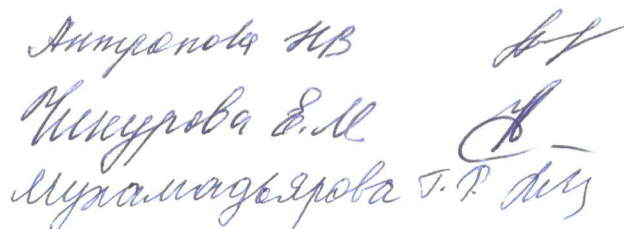 Антропова НВ
Чикурова Е.М
Мухамадьярова Г.Р.